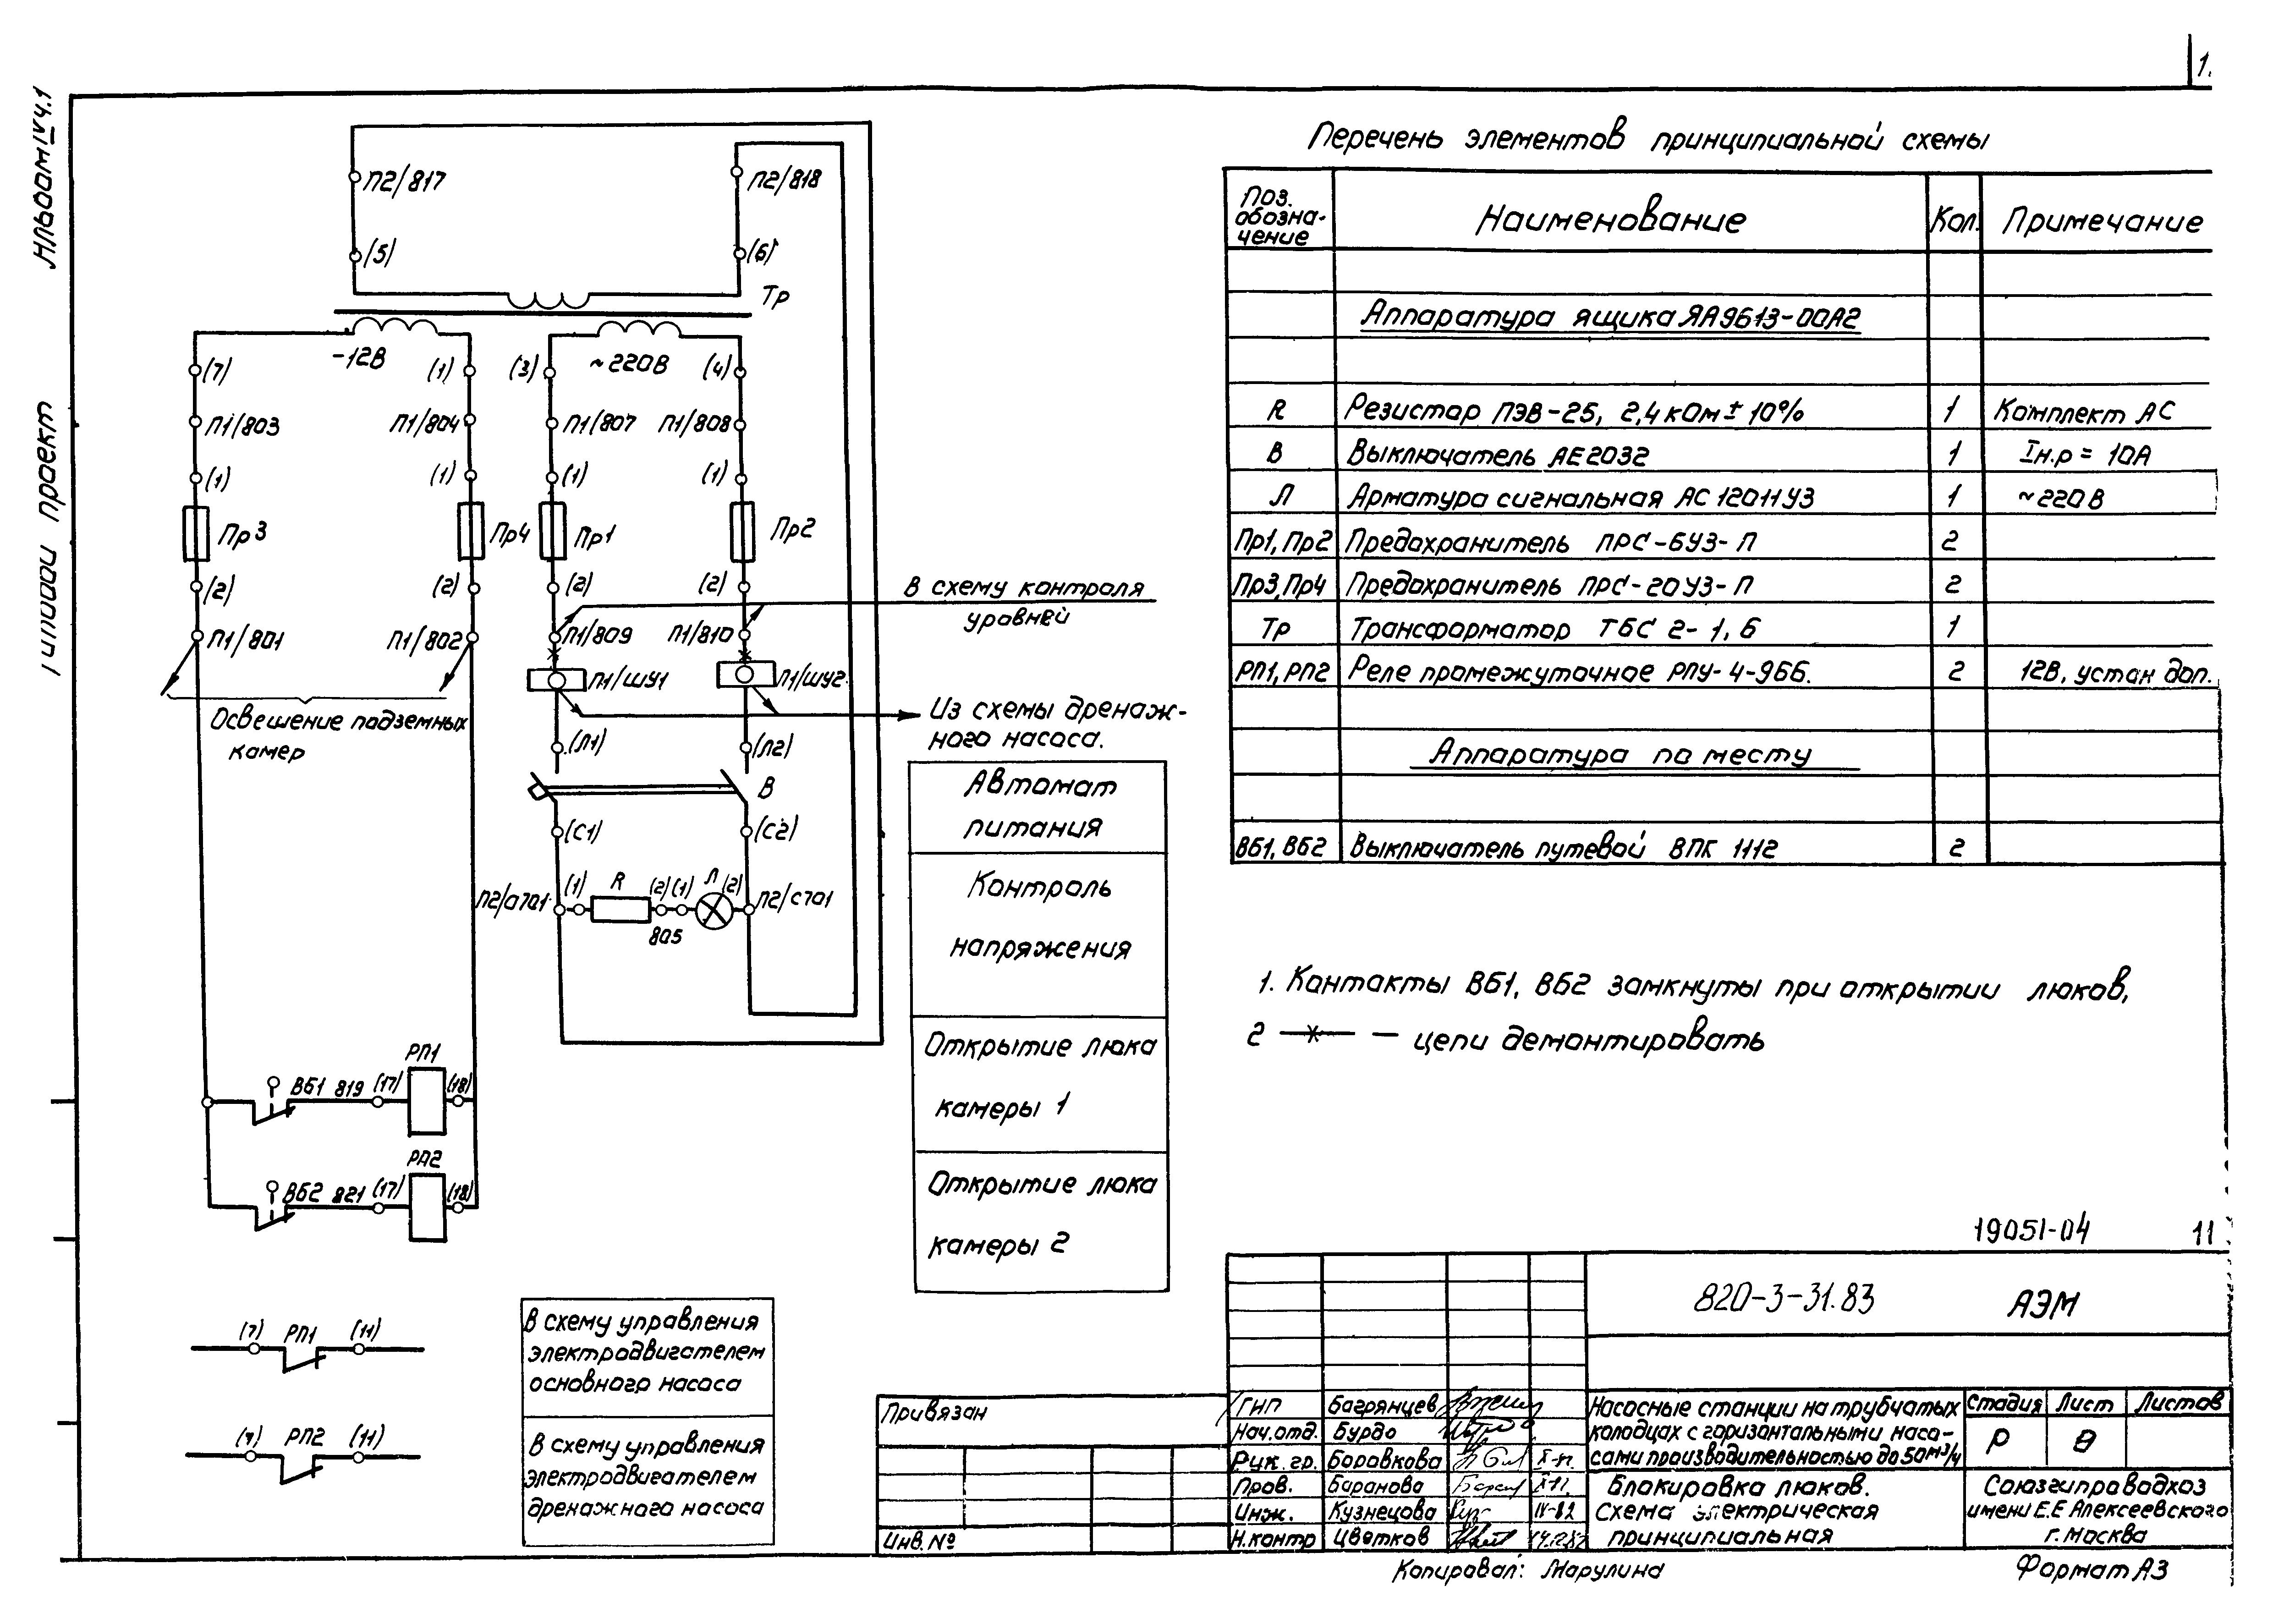 1.
Альбом IV ч.1
Типовой проект
П2/817
П2/818
(5)
(6)
Тр
~12В
~220В
(7)
(1)
(3)
(4)
П1/803
П1/804
П1/807
П1/808
(1)
(1)
(1)
(1)
Пр3
Пр4
Пр1
Пр2
(2)
(2)
(2)
(2)
П1/801
П1/802
П1/809
П1/810
В схему контроля
уровней
П1/ШУ1
П1/ШУ2
Освещение подземных
камер
Из схемы дренаж-
ного насоса.
(Л1)
(Л2)
В
(С1)
(С2)
П2/А701
(1)
R
(2)
(1)
Л
(2)
П2/С701
805
Автомат
питания
Контроль
напряжения
Открытие люка
камеры 1
Открытие люка
камеры 2
ВБ1 819 (17)
РП1
(18)
ВБ2 821 (17)
РП2
(18)
(7) РП1 (11)
(7) РП2 (11)
В схему управления
электродвигателем
основного насоса
В схему управления
электродвигателем
дренажного насоса
Перечень элементов принципиальной схемы
Поз. обозна-чение Наименование Кол. Примечание
Аппаратура ящика ЯА9613-00А2
R Резистор ПЭВ-25, 2,4 кОм ± 10% 1 Комплект АС
В Выключатель АЕ2032 1 Iн.р = 10А
Л Арматура сигнальная АС 12011У3 1 ~220В
Пр1, Пр2 Предохранитель ПРС-6У3-П 2
Пр3, Пр4 Предохранитель ПРС-20У3-П 2
Тр Трансформатор ТБС 2-1,6 1
РП1, РП2 Реле промежуточное РПУ-4-966. 2 12В, устан доп.
Аппаратура по месту
ВБ1, ВБ2 Выключатель путевой ВПК 1112 2
1. Контакты ВБ1, ВБ2 замкнуты при открытии люков,
2 —*— — цепи демонтировать
19051-04 11
820-3-31.83 АЭМ
Привязан
Инв.№
ГИП Багрянцев
Нач.отд. Бурдо
Рук. гр. Боровкова
Пров. Баранова
Инж. Кузнецова IV-82
Н.контр Цветков
Насосные станции на трубчатых
колодцах с горизонтальными насо-
сами производительностью до 50м³/ч
Стадия Лист Листов
Р 8
Блокировка люков.
Схема электрическая
принципиальная
Союзгипроводхоз
имени Е.Е Алексеевского
г. Москва
Копировал: Марулина
Формат А3